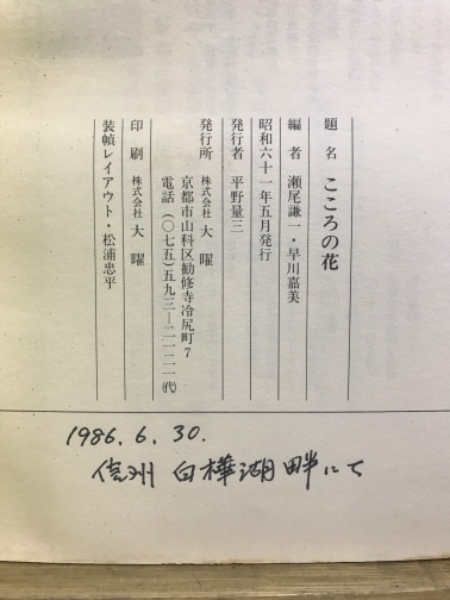 題名 こころの花
編者 瀬尾謙一・早川嘉美
昭和六十一年五月発行
発行者 平野量三
発行所 株式会社 大曜
京都市山科区勧修寺冷尻町7
電話(〇七五)五九三―二一二一(代)
印刷 株式会社 大曜
装幀レイアウト・松浦忠平
1986.6.30.
信州 白樺湖畔にて